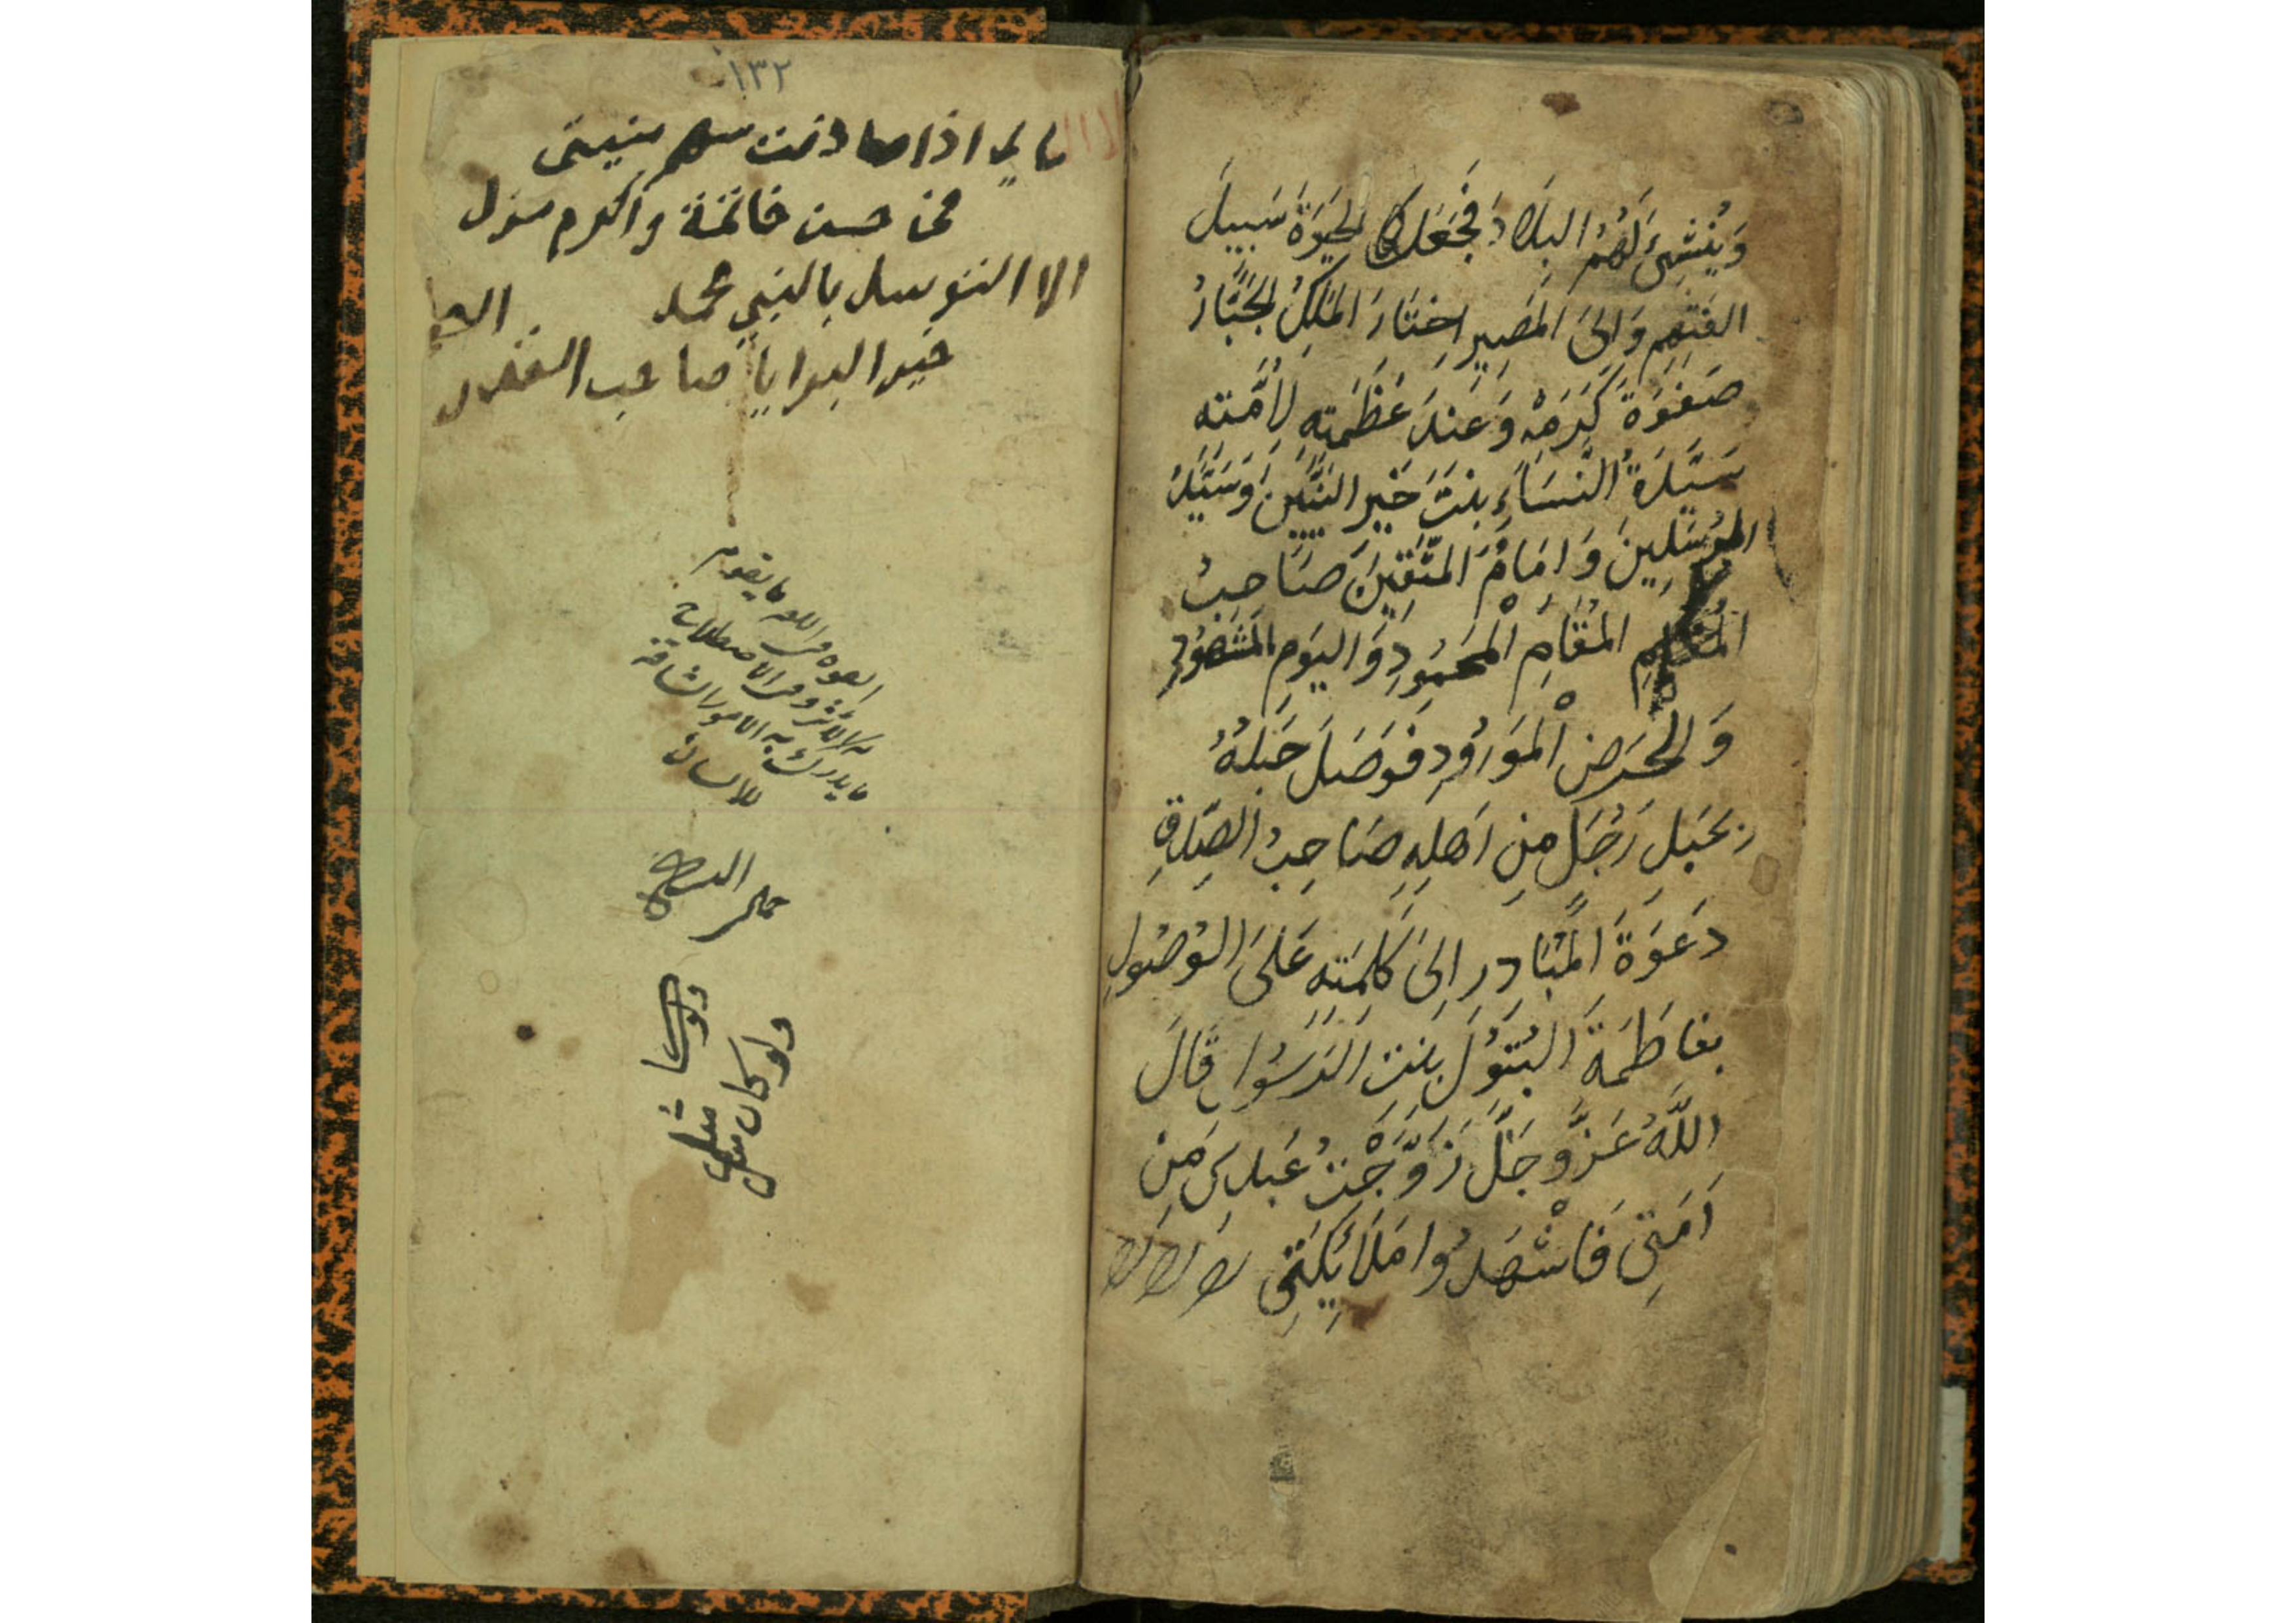 وَيُنْشِئَ لَهُمُ البِلَادَ فَجَعَلَ الحَيٰوةَ سَبِيلَ
وَاِلَى المَصِيرِ اِخْتَارَ المَلِكُ الجَبَّارُ
صَفْوَةَ كَرَمِهِ وَعِنْدَ عَظَمَتِهِ لِأَمَتِهِ
سَيِّدَةُ النِّسَاءِ بِنْتَ خَيْرِ النَّبِيِّينَ وَسَيِّدُ
المُرْسَلِينَ وَاِمَامُ المُتَّقِينَ صَاحِبُ
المَقَامِ الْمَحمُودِ وَاليَومِ المَشْهُودِ
وَالحَوضِ الْمَورُودِ فَوَصَلَ حَبْلَهُ
بِحَبْلِ رَجُلٍ مِنْ اَهْلِهِ صَاحِبُ الصِّدْقِ
دَعْوَةَ المُبَادِرِ اِلَى كَلِمَتِهِ عَلَى الوُصُولِ
بِفَاطِمَةَ البَتُولِ بِنْتِ الرَسُول قَالَ
اللَّهُ عَزَّوَجَلَّ زَوَّجْتُ عَبْدِي مِنْ
اَمَتِي فَاشْهَدُوا مَلَائِكَتِي
١٣٢
ما لي اذا صادفت سهم منيتى
حسن خاتمة واكرم منزل
الا التوسل بالنبي محمد
خير البرايا صاحب
والله ما يقوم
وفي الاصطلاح
ما يدرك به الامور الشاقة
للانسان
ولو كان